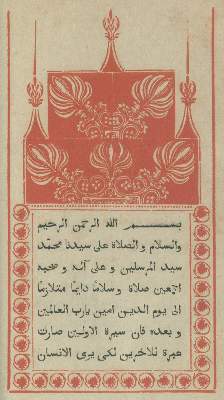 بســـــــم الله الرحمن الرحيم
والسلام والصلاة على سيدنا محمد
سيد المرسلين و على آله و صحبه
اجمعين صلاة وسلاما دايما متلازما
الى يوم الدين امين يارب العالمين
و بعده فان سيرة الاولين صارت
عبرة للاخرين لكى يرى الانسان